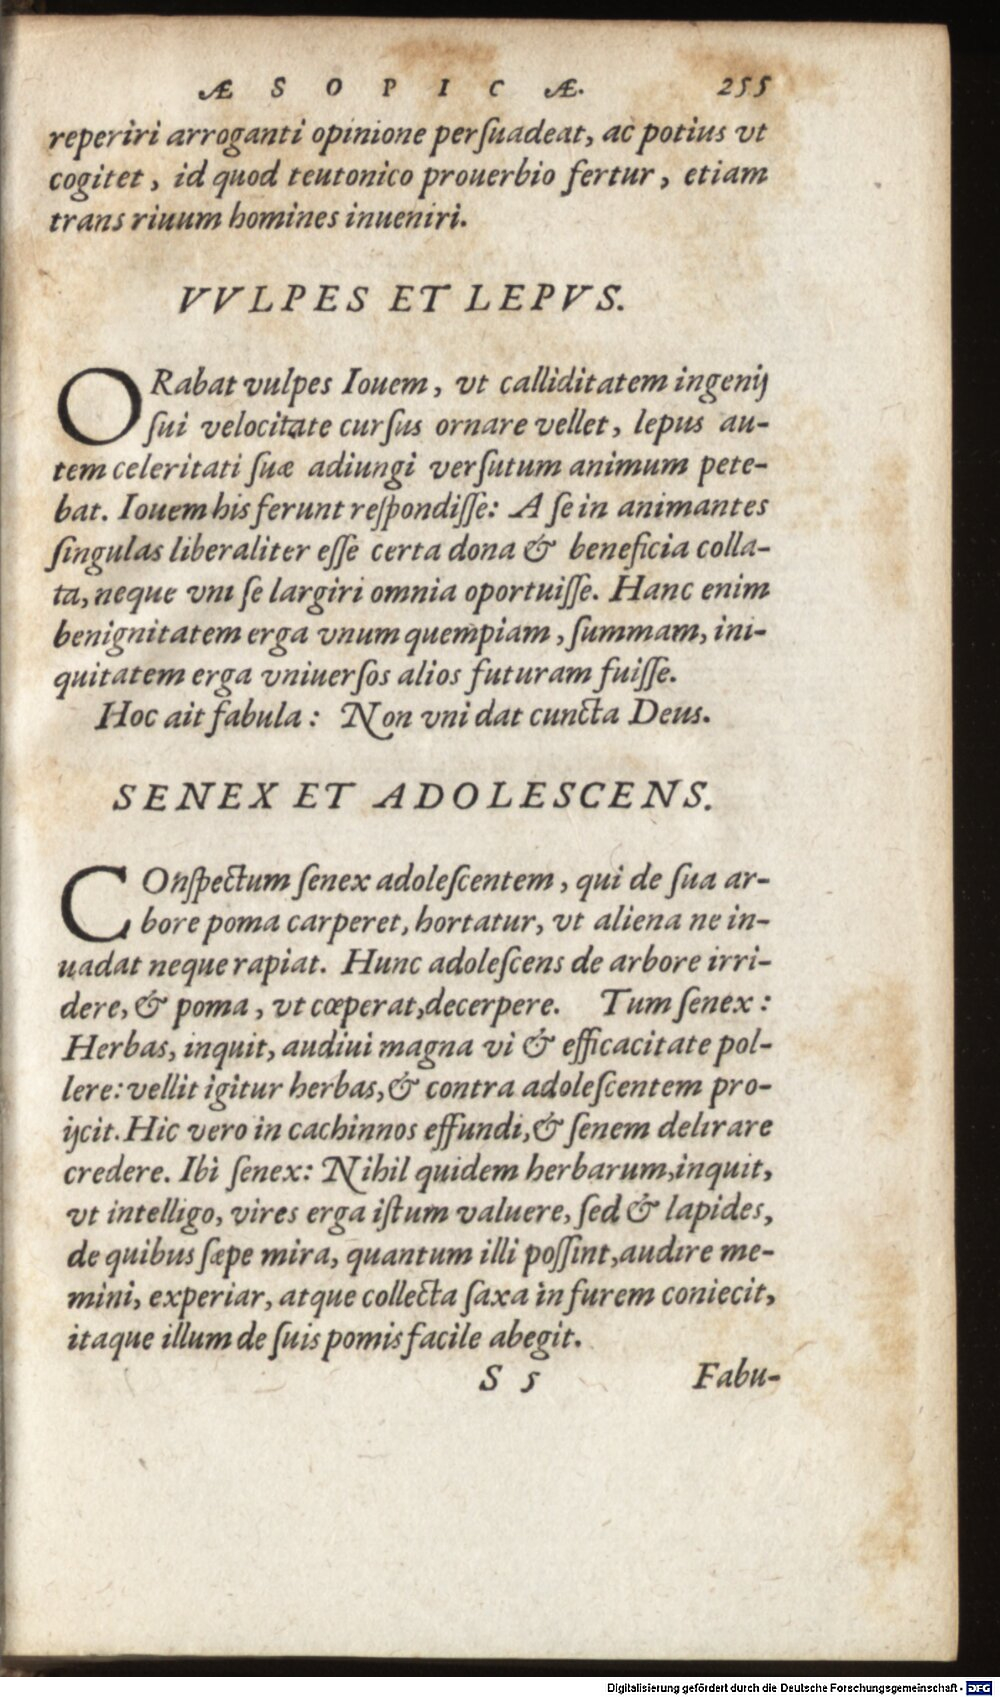 ÆSOPICÆ. 255
reperiri arroganti opinione perſuadeat, ac potius vt
cogitet, id quod teutonico prouerbio fertur, etiam
trans riuum homines inueniri.
VVLPES ET LEPVS.
ORabat vulpes Iouem, vt calliditatem ingenij
ſui velocitate curſus ornare vellet, lepus au-
tem celeritati ſuæ adiungi verſutum animum pete-
bat. Iouem his ferunt reſpondiſſe: A ſe in animantes
ſingulas liberaliter eſſe certa dona & beneficia colla-
ta, neque vni ſe largiri omnia oportuiſſe. Hanc enim
benignitatem erga vnum quempiam, ſummam, ini-
quitatem erga vniuerſos alios futuram fuiſſe.
Hoc ait fabula: Non vni dat cuncta Deus.
SENEX ET ADOLESCENS.
COnſpectum ſenex adoleſcentem, qui de ſua ar-
bore poma carperet, hortatur, vt aliena ne in-
uadat neque rapiat. Hunc adoleſcens de arbore irri-
dere, & poma, vt cœperat, decerpere. Tum ſenex:
Herbas, inquit, audiui magna vi & efficacitate pol-
lere: vellit igitur herbas, & contra adoleſcentem pro-
ijcit. Hic vero in cachinnos effundi, & ſenem delirare
credere. Ibi ſenex: Nihil quidem herbarum, inquit,
vt intelligo, vires erga iſtum valuere, ſed & lapides,
de quibus ſæpe mira, quantum illi poſſint, audire me-
mini, experiar, atque collecta ſaxa in furem coniecit,
itaque illum de ſuis pomis facile abegit.
S 5 Fabu-
Digitalisierung gefördert durch die Deutsche Forschungsgemeinschaft - DFG